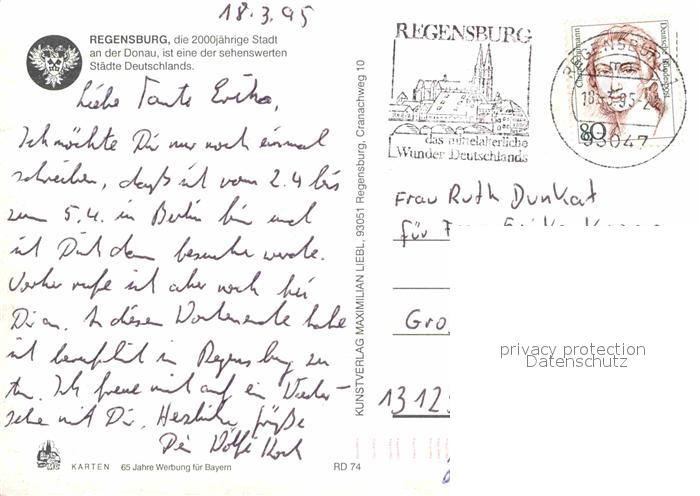 18.3.95
REGENSBURG, die 2000jährige Stadt
an der Donau, ist eine der sehenswerten
Städte Deutschlands.
Liebe Tante Erika,
Ich möchte Dir nur noch einmal
schreiben, daß ich vom 2.4 bis
zum 5.4. in Berlin bin und
ich Dich dann besuchen werde.
Vorher rufe ich aber noch bei
Dir an. An diesem Wochenende habe
ich beruflich in Regensburg zu
tun. Ich freue mich auf ein Wieder-
sehen mit Dir. Herzliche Grüße
Dein
KARTEN 65 Jahre Werbung für Bayern RD 74
KUNSTVERLAG MAXIMILIAN LIEBL, 93051 Regensburg, Cranachweg 10
REGENSBURG
das mittelalterliche
Wunder Deutschlands
REGENSBURG 1
18.-3.95-2
93047
80
Deutsche Bundespost
Frau Ruth Dunkat
für Frau Erika
Gro
1312
privacy protection
Datenschutz